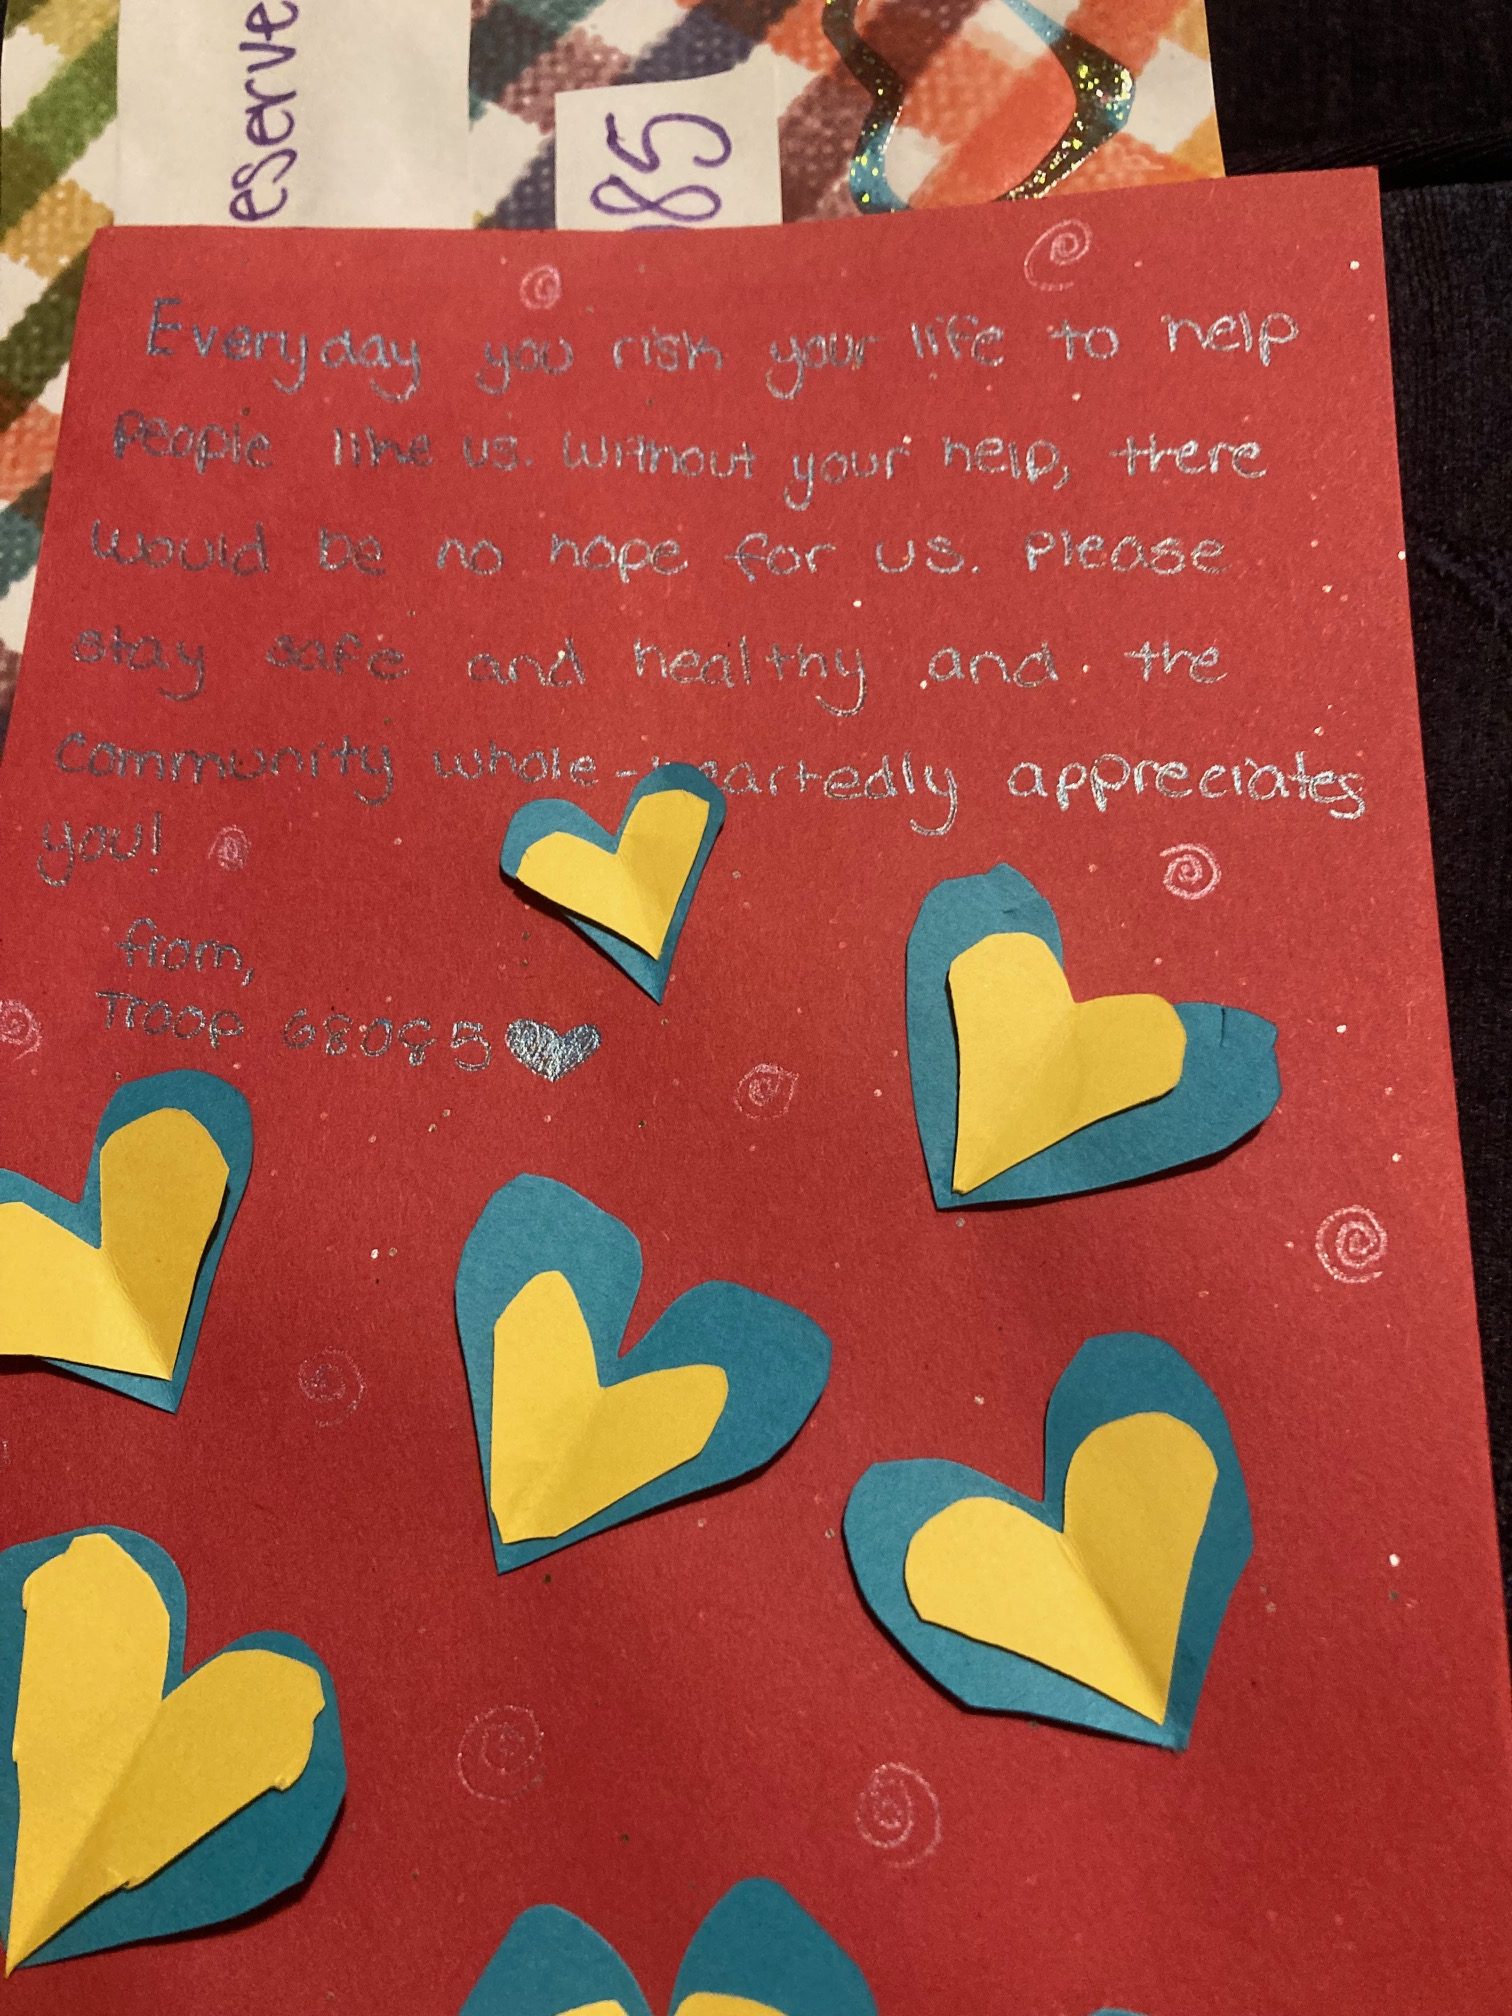 eserve
85
Everyday you risk your life to help
people like us. Without your help, there
would be no hope for us. Please
stay safe and healthy and the
community whole-heartedly appreciates
you!
from,
Troop 68085